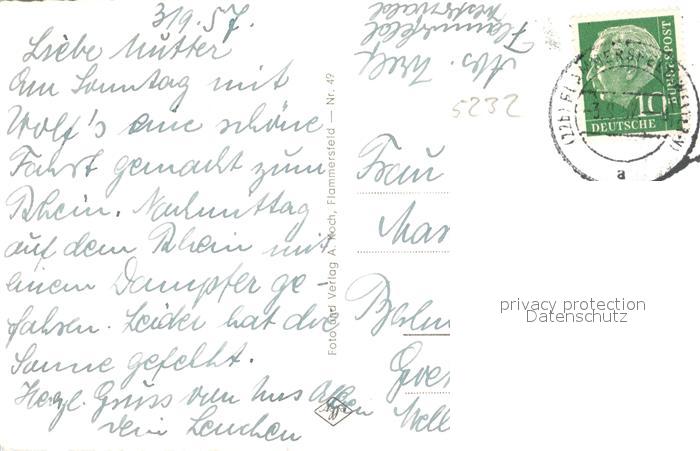 3/9.57.
Liebe Mutter
Am Sonntag mit
Wolf's eine schöne
Fahrt gemacht zum
Rhein. Nachmittag
auf dem Rhein mit
einem Dampfer ge-
fahren. Leider hat die
Sonne gefehlt.
Herzl. Gruss von uns Allen
Dein Lenchen
Foto und Verlag A. Koch, Flammersfeld — Nr. 49
Abs. Wolf
Flammersfeld
Westerwald
5232
Frau
Mar
DEUTSCHE
BUNDESPOST
10
(22b) FLAMMERSFELD (WESTERW)
a
privacy protection
Datenschutz